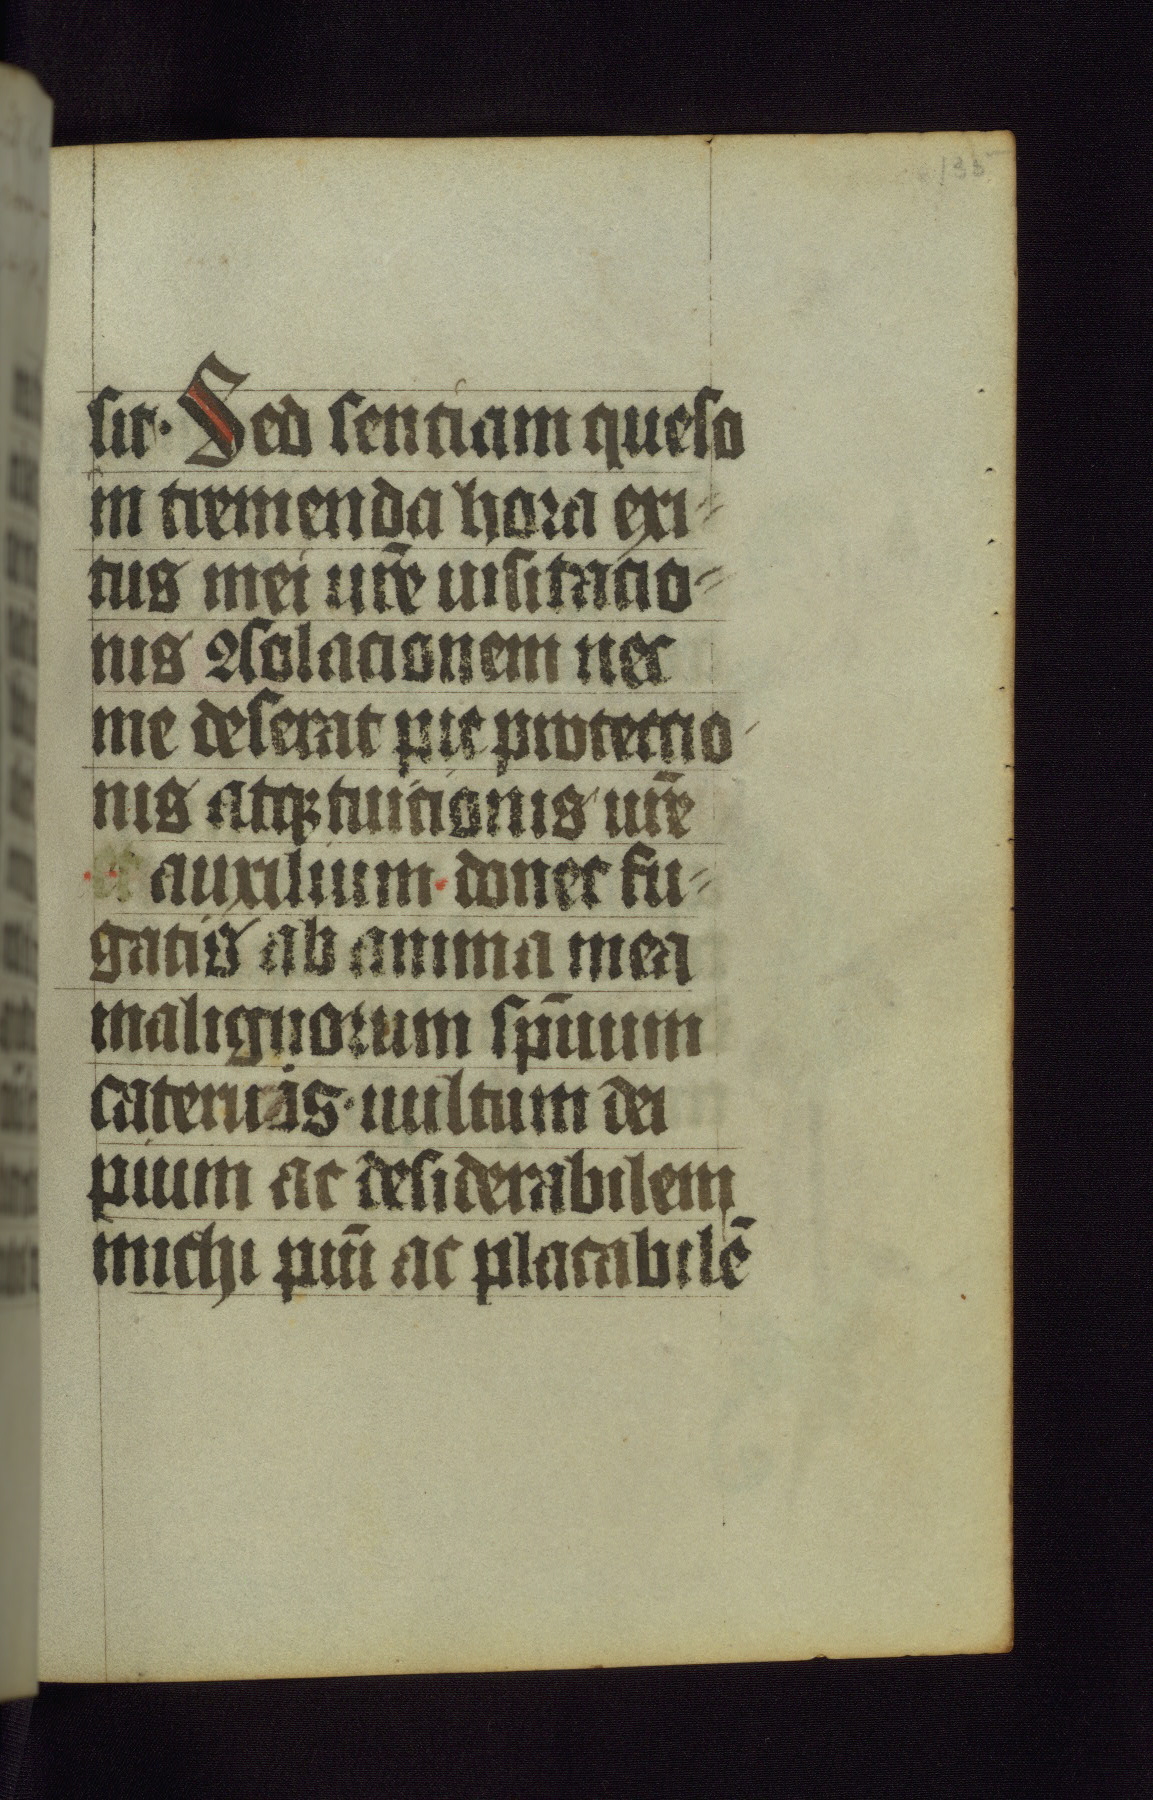 135
sit. Sed sentiam queso
in tremenda hora exi-
tus mei vr̄e uisitacio-
nis ꝯsolacionem nec
me deserat pie protectio
nis atqꝫ tuicionis vr̄e
auxilium. donec fu-
gatis ab anima mea
malignorum sp̄uum
cateruis. uultum dei
pium ac desiderabilem
michi piū ac placabilē